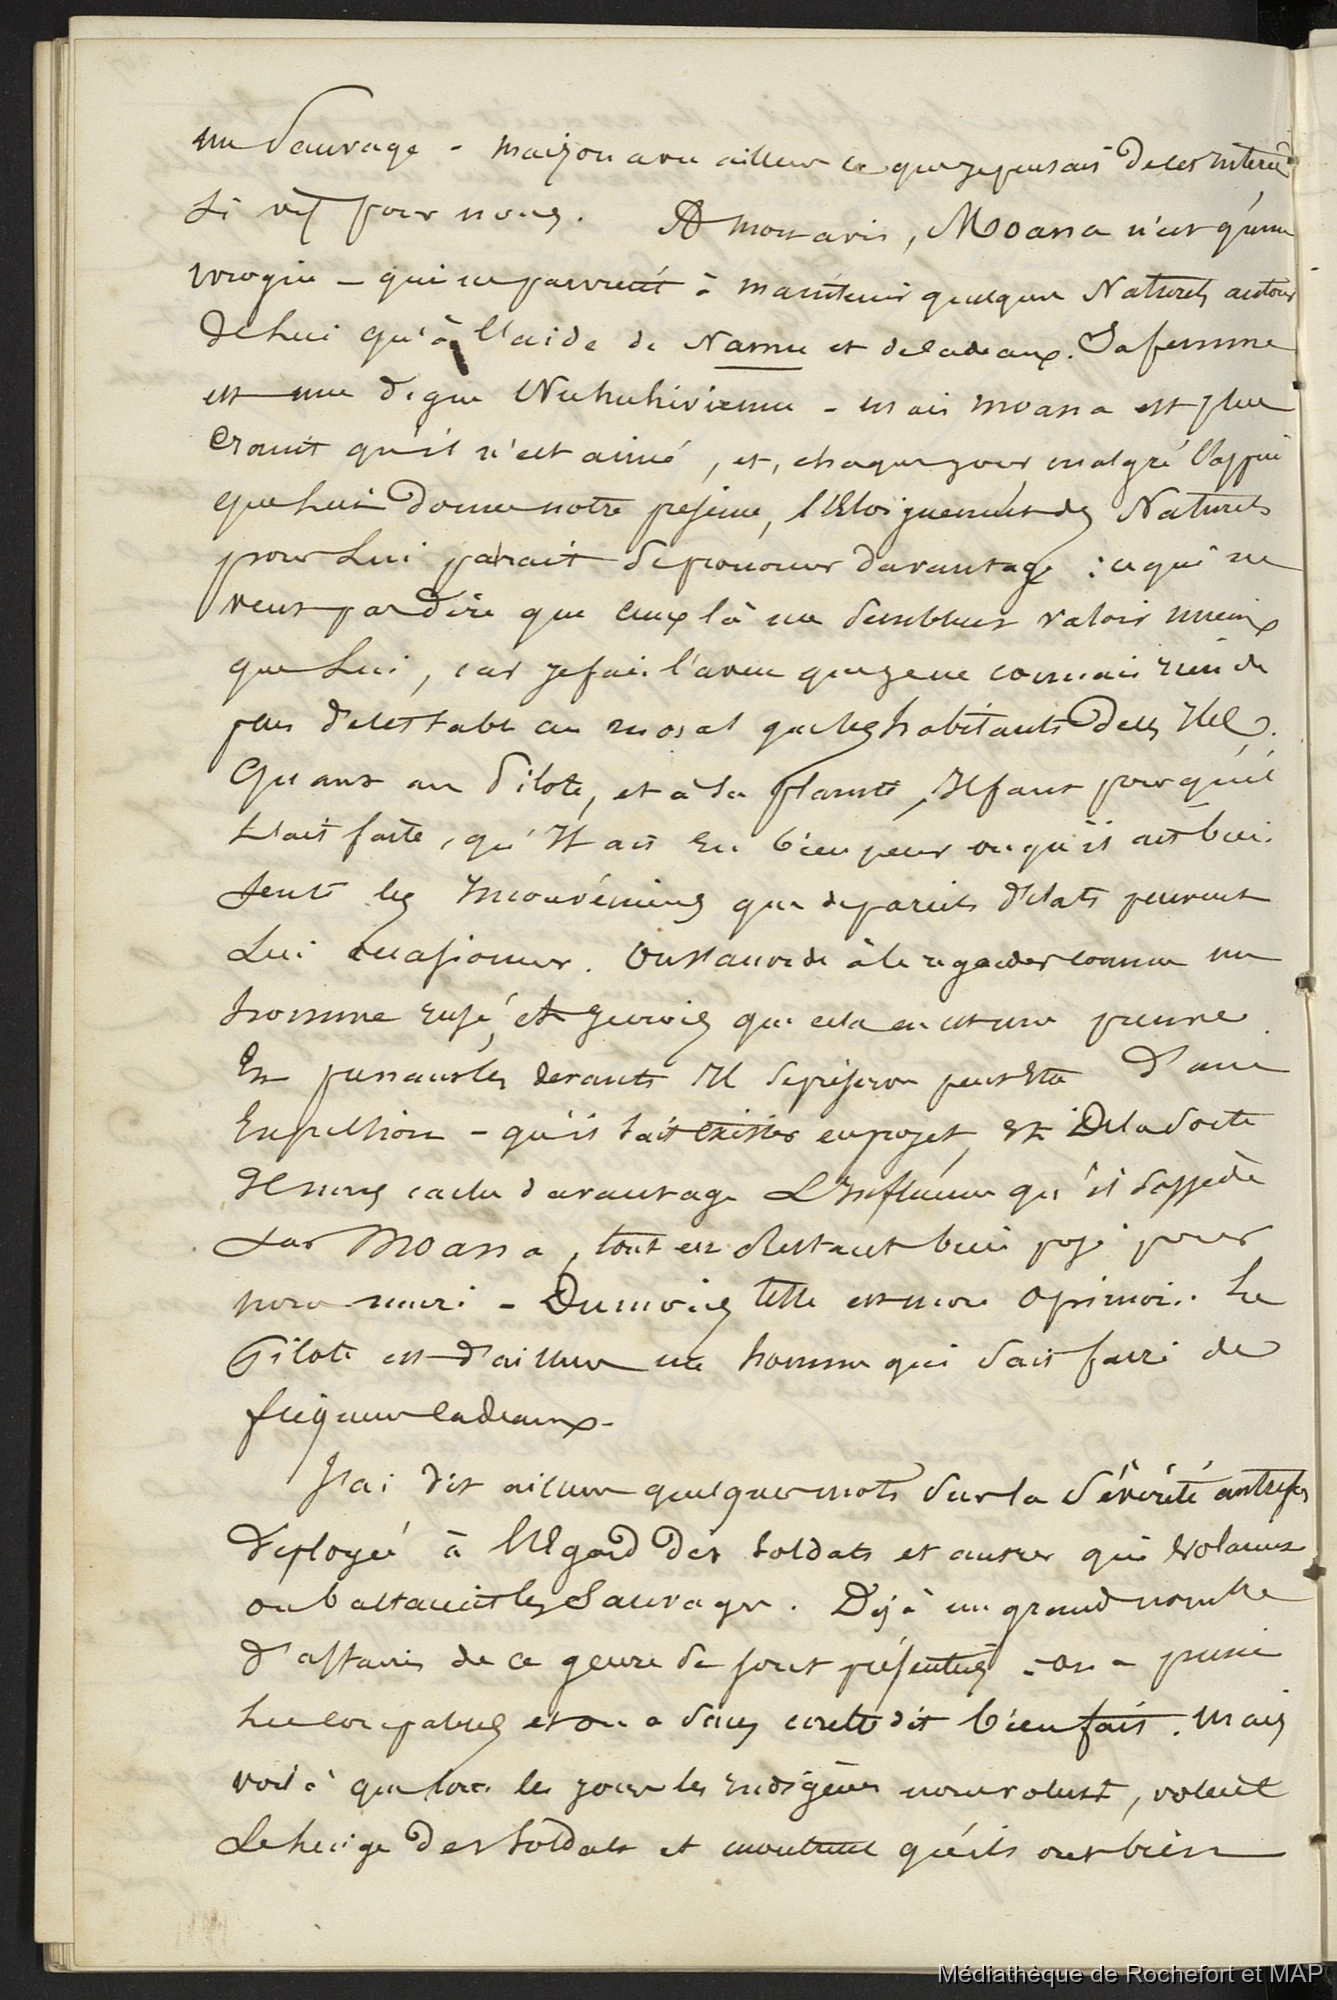 un Sauvage - mais on a vu ailleurs ce que je pensais de cet intérêt
si vif pour nous. A mon avis, Moana n'est qu'un
ivrogne - qui ne parvient à maintenir quelques Naturels autour
de Lui qu'à l'aide de Namu et de cadeaux. Sa femme
est une digne Nuhuhivienne - mais Moana est plus
craint qu'il n'est aimé, et, chaque jour malgré l'appui
que Lui donne notre présence, l'Eloignement des Naturels
pour Lui parait se prononcer davantage : ce qui ne
veut pas dire que ceux là me semblent valoir mieux
que Lui, car je fais l'aveu que je ne connais rien de
plus détestable au moral que les habitants de ces Iles.
Quant au Pilote, et à sa plainte, Il faut pour qu'il
l'ait faite, qu'Il ait eu bien peur ou qu'il ait bien
senti les Inconvéniens que de pareils éclats peuvent
Lui occasionner. On s'accorde à le regarder comme un
homme rusé, et je crois que cela en est une preuve
En prenant les devants Il se préserve peut Etre d'une
Expulsion - qu'il sait exister en projet, et De la sorte
Il nous cache davantage L'Influence qu'il possède
sur Moana, tout en Restant bien posé pour
nous nuire - Du moins telle est mon opinion. Le
Pilote est d'ailleurs un homme qui sait faire de
fréquens cadeaux -
J'ai dit ailleurs quelques mots sur la Sévérité autrefois
déployée à l'Egard des soldats et autres qui volaient
ou battaient les Sauvages. Déjà un grand nombre
d'affaires de ce genre se sont présentées - on a puni
Les coupables et on a sans contredit bien fait. Mais
voilà que tous les jours les Indigènes nous volent, volent
Le linge des soldats et montrent qu'ils ont bien
Médiathèque de Rochefort et MAP